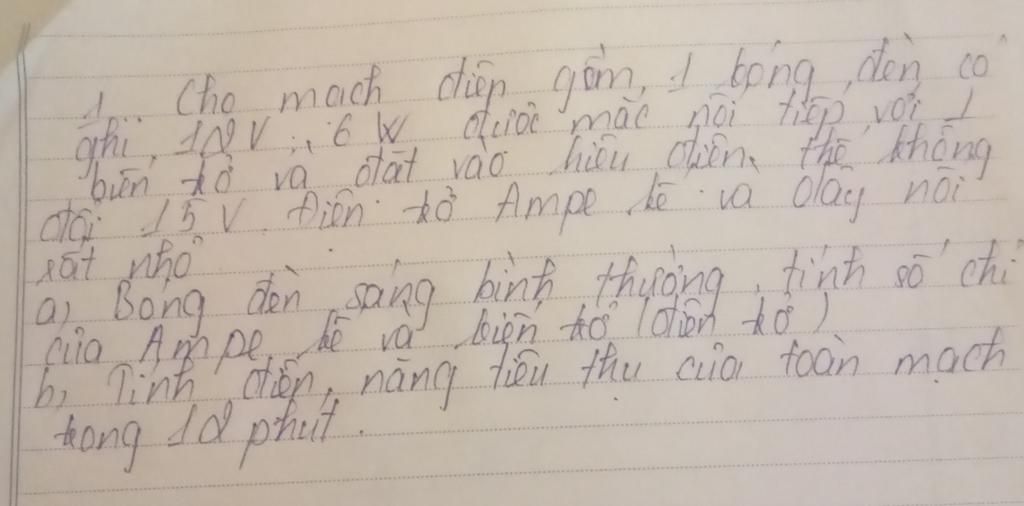 1. Cho mạch điện gồm, 1 bóng đèn có
ghi, 12V :, 6 W được mắc nối tiếp với 1
biến trở và đặt vào hiệu điện thế không
đổi 15 V. Điện trở Ampe kế và dây nối
rất nhỏ
a, Bóng đèn sáng bình thường, tính số chỉ
của Ampe kế và biến trở (điện trở)
b, Tính điện năng tiêu thụ của toàn mạch
trong 12 phút.